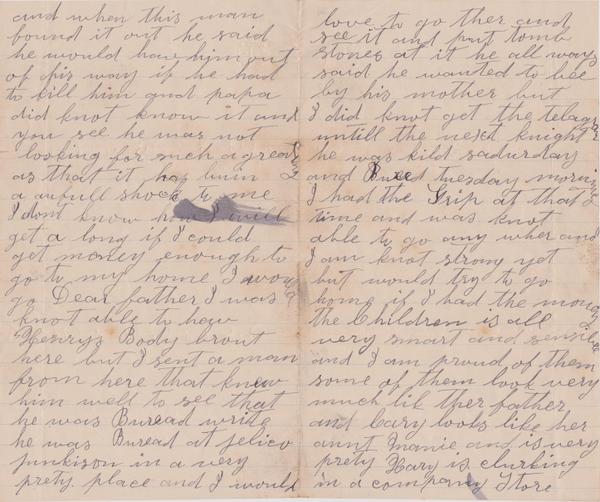 and when this man
found it out he said
he would have him out
of his way if he had
to kill him and papa
did knot know it and
you see he was not
looking for such a great
as that it has buin
a awfull shock to me
I dont know how I will
get a long if I could
get money enough to
go to my home I would
go Dear father I was
knot able to have
Henrys Body brout
here but I sent a man
from here that knew
him well to see that
he was Buread write
he was Buread at jelico
junkison in a very
prety place and I would
love to go ther and
see it and put tomb
stones at it he all ways
said he wanted to bee
by his mother but
I did knot get the telagra
untill the next knight
he was kild sadurday
and Bured tuesday morning
I had the Grip at that
time and was knot
able to go any wher and
I am knot strong yet
but would try to go
home if I had the money
the Children is all
very smart and sensible
and I am proud of them
some of them look very
much lik ther father
and Cary looks like her
aunt Manie and is very
prety Hary is clurking
in a company Store